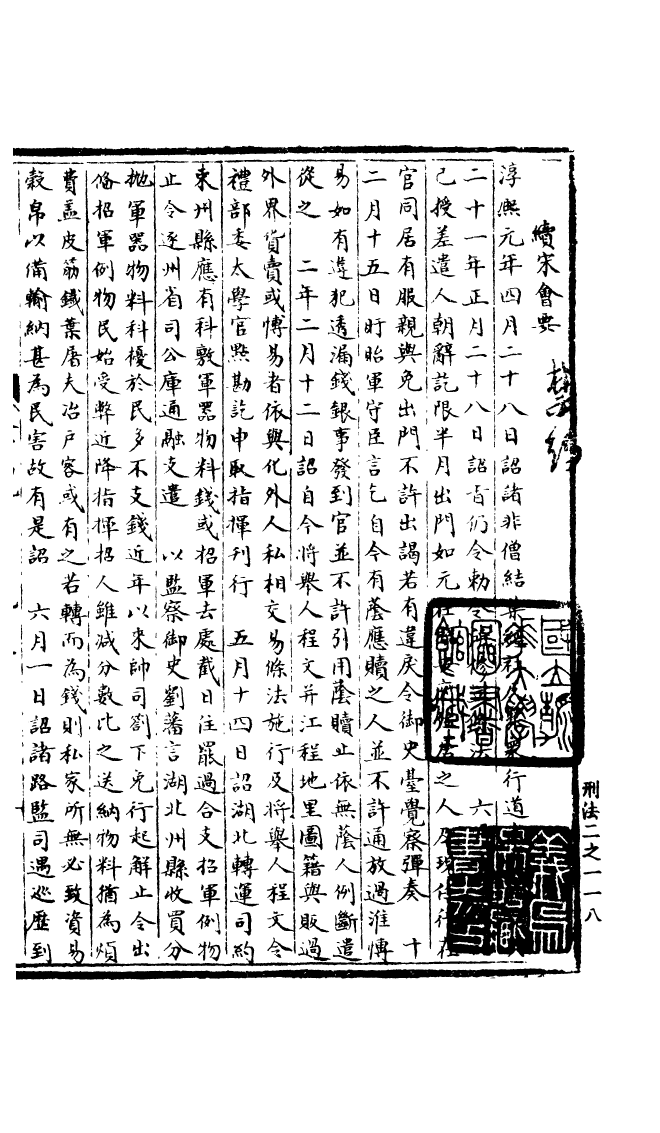 續宋會要
淳熙元年四月二十八日詔諸非僧結集經社及聚衆行道
二十一年正月二十八日詔旨仍令勑令 法 六
已授差遣人朝辭訖限半月出門如元 法之人及現任行在
官同居有服親與免出門不許出謁若有違戾令御史臺覺察彈奏 十
二月十五日盱眙軍守臣言乞自今有蔭應贖之人並不許通放過淮博
易如有違犯透漏錢銀事發到官並不許引用蔭贖止依無蔭人例斷遣
從之 二年二月十二日詔自今將舉人程文并江程地里圖籍與販過
外界貨賣或博易者依與化外人私相交易條法施行及將舉人程文令
禮部委太學官點勘訖申取指揮刊行 五月十四日詔湖北轉運司約
束州縣應有科敷軍器物料錢或招軍去處截日住罷過合支招軍例物
止令逐州省司公庫通融支遣 以監察御史劉蕃言湖北州縣收買分
拋軍器物料科擾於民多不支錢近年以來帥司劄下免行起解止令出
俻招軍例物民始受弊近降指揮招人雖減分數比之送納物料猶為煩
費盖皮筋鐵葉屠夫冶戶容或有之若轉而為錢則私家所無必致資易
穀帛以備輸納甚為民害故有是詔 六月一日詔諸路監司遇巡歷到
刑法二之一一八